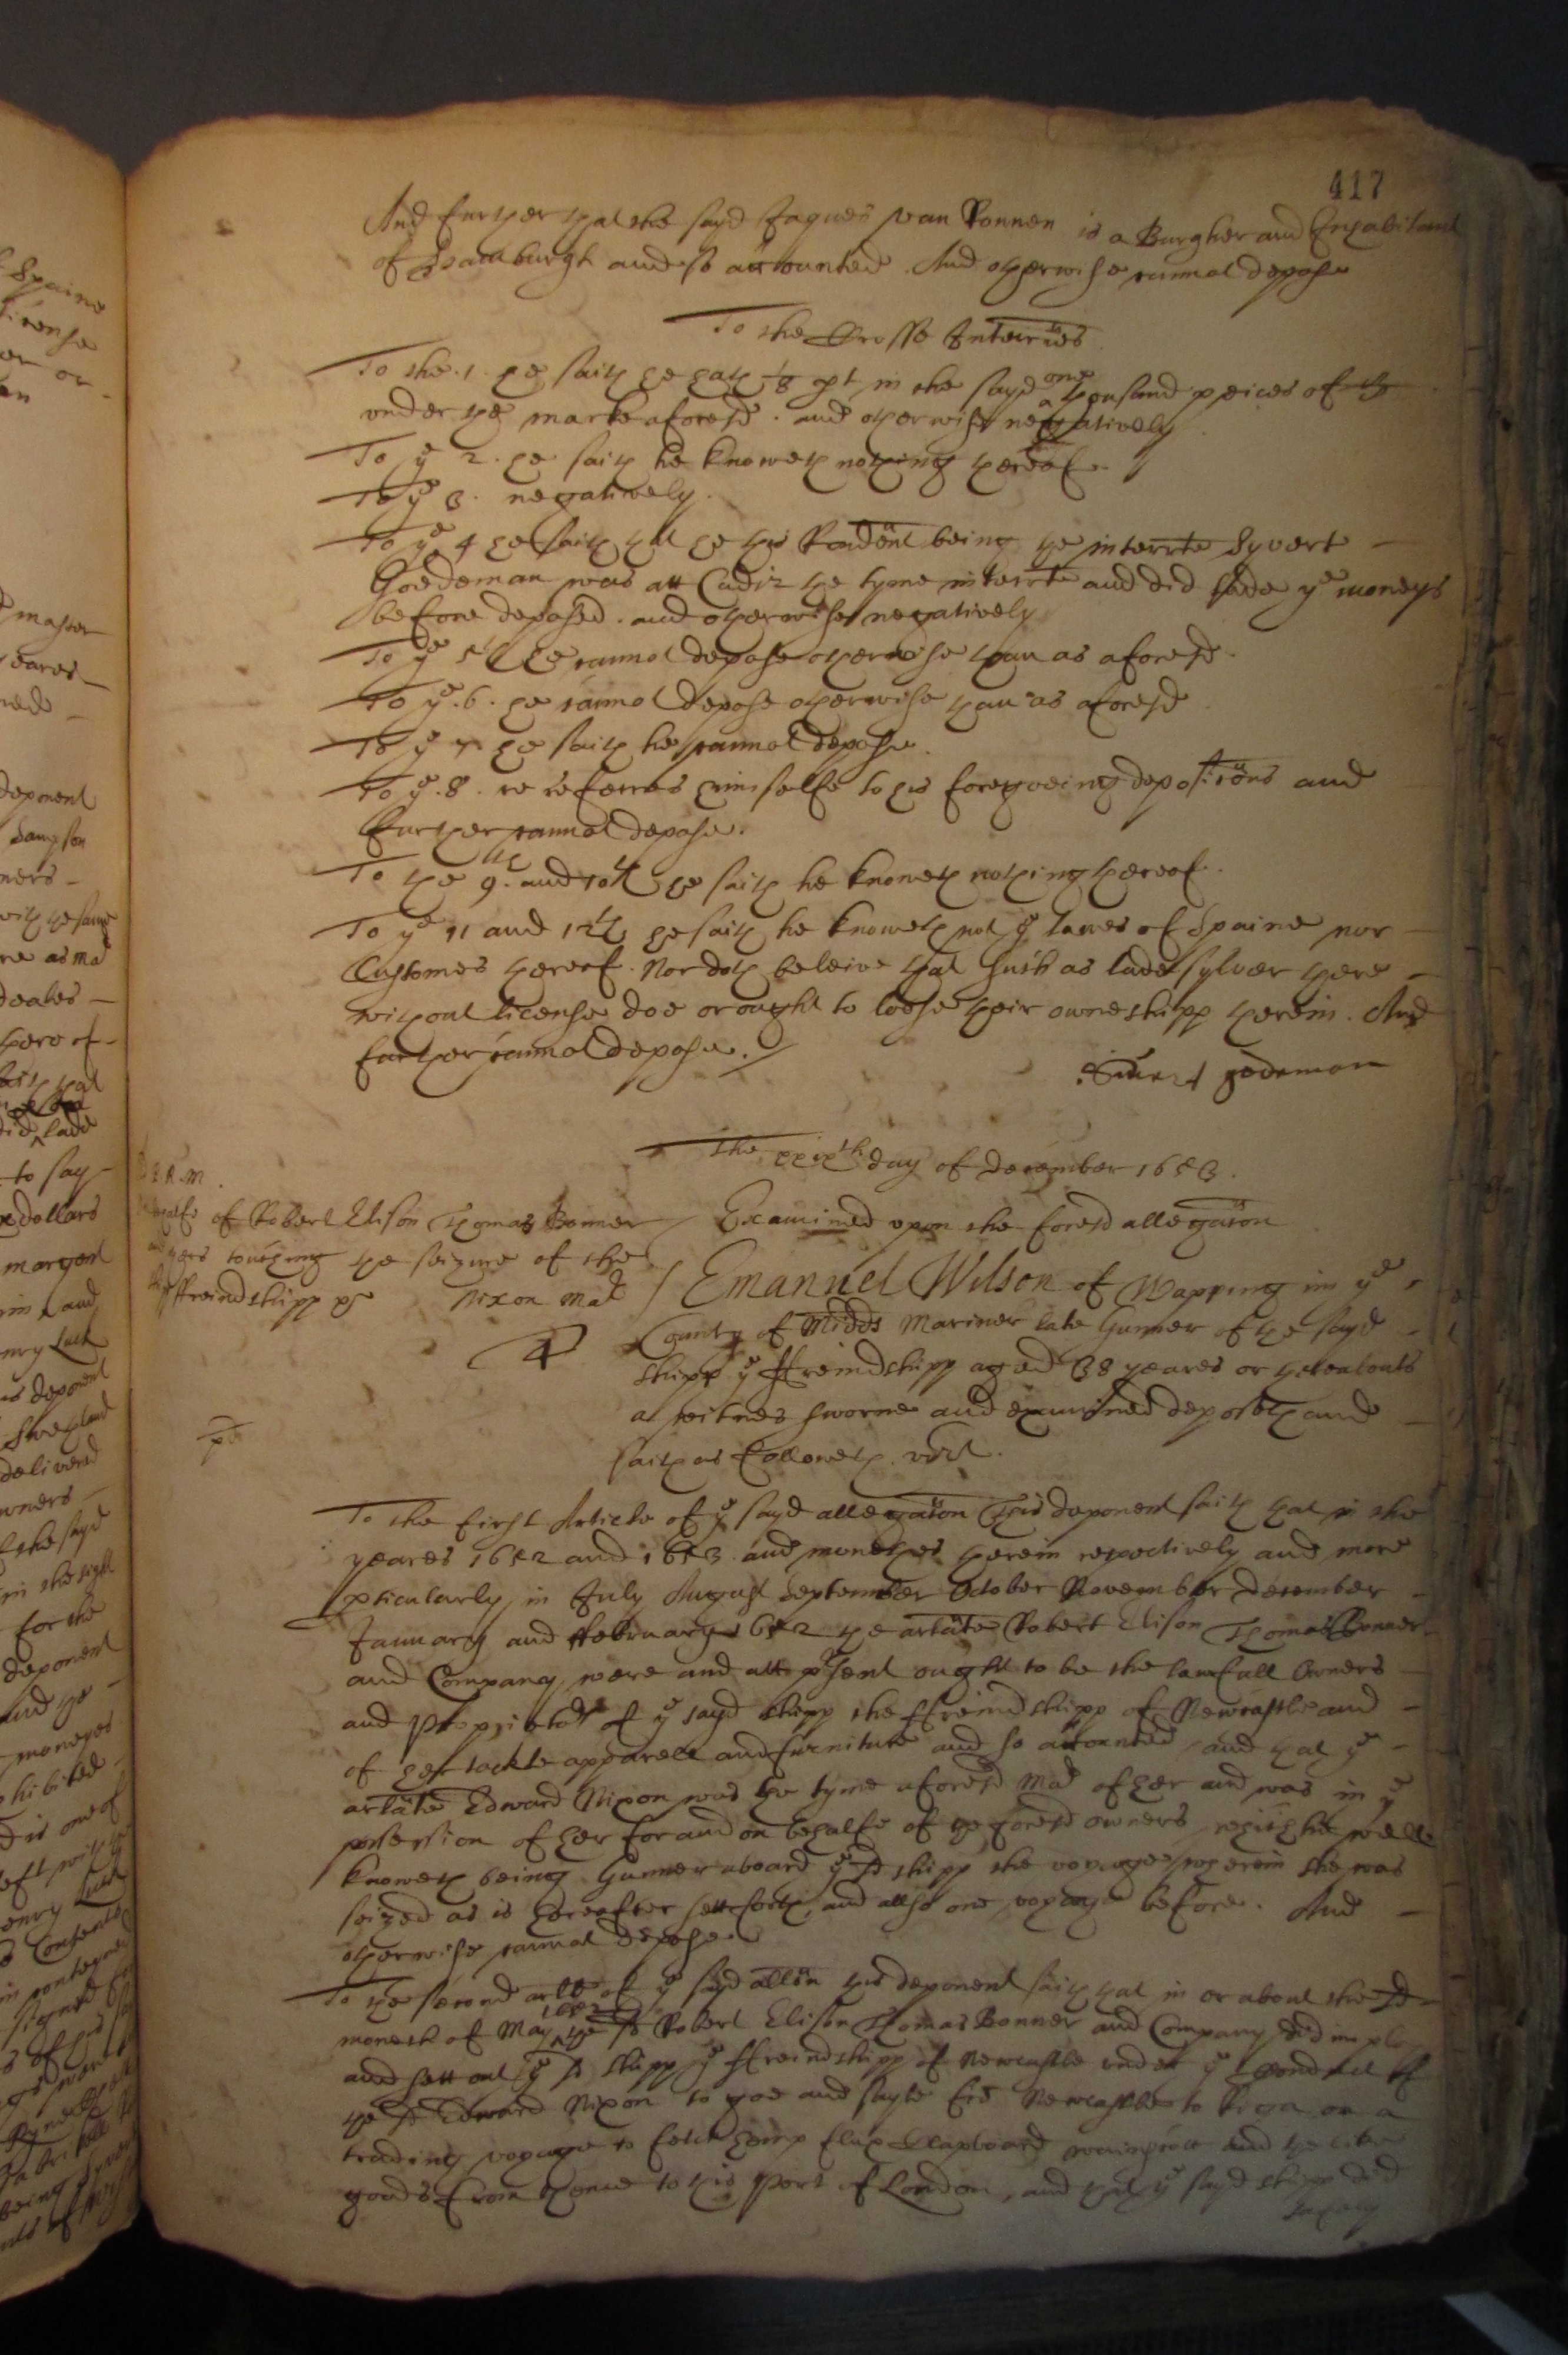 417
And further that the sayd Jaques van Ronnen is a Burgher and Inhabitant
of Hamburgh and so accounted. And otherwise cannot depose
To the Crosse Interries
To the .1. he saith he hath 1/8 pt in the sayd one thousand peices of
under the marke aforesd. and otherwise negatively
To ye 2. he saith he knoweth nothing thereof.
To ye 3. negatively.
To ye 4 he saith that he this Rendent being the interrte Syvert
Goedeman was att Cadiz the tyme interrte and did lade ye moneys
before deposed. and otherwise negatively
To ye 5th he cannot depose otherwise than as aforesd.
To ye .6. he cannot depose otherwise than as aforesd.
To ye 7. he saith he cannot depose.
To ye .8. he referres himselfe to his foregoeing depositions and
further cannot depose.
To the 9th and 10th he saith he knoweth nothing thereof.
To ye 11 and 12th he saith he knoweth not ye lawes of Spaine nor
Customes thereof. Nor doth beleive that such as lade sylver there
without license doe or ought to loose their owneshipp therein. And
further cannot depose./
Siuert godeman
The xxixth day of December 1653.
R. M.
of Robert Elison Thomas Bonner
touching the seizure of the
ffreindshipp Nixon Mar
Examined upon the foresd allegation
4
Emanuel Wilson of Wapping in ye
County of Midds Mariner late Gunner of the sayd
shipp ye ffreindshipp aged 38 yeares or thereabouts
a witnes sworne and examined deposeth and
saith as followeth. vizt.
To the first Article of ye sayd allegation this deponent saith that in the
yeares 1652 and 1653 and monethes therein respectively and more
pticularly in July August September October November December
January and ffebruary 1652 the arlate Robert Elison Thomas Bonner
and Company were and att psent ought to be the lawfull Owners
and Proprietors of ye sayd shipp the ffreindshipp of Newcastle and
of her tackle apparell and furniture and so accounted, and that ye
arlate Edward Nixon was the tyme aforesd Mar of her and was in ye
possession of her for and on behalfe of the foresd owners which hee well
knoweth being Gunner aboard ye sd shipp the voyage wherein she was
seized as is hereafter sett forth, and allso one voyage before. And
otherwise cannot depose.
To the second arle of ye sayd allon this deponent saith that in or about the sd
moneth of May 1652 the sd Robert Elison Thomas Bonner and Company did imploy
and sett out ye sd shipp ye ffreindshipp of Newcastle under ye Conduct of
the sd Edward Nixon to goe and sayle fro Newcastle to Riga on a
trading voyage to fetch hemp flax Clapboard and the like
goods from thence to this Port of London, and that ye sayd shipp did